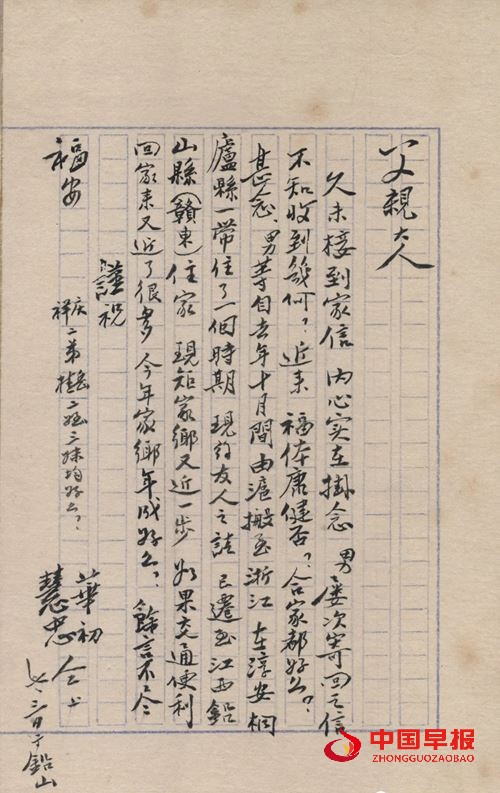 父親大人
久未接到家信 內心实在掛念 男屡次寄回之信
不知收到幾何？近来 福体康健否？合家都好么？
甚念、男等自去年十月間由滬搬至浙江 在淳安桐
廬縣一带住了一個時期 現約友人之請 已遷至江西鉛
山縣(贛東)住家 現距家鄉又近一步 如果交通便利
回家来又近了很多 今年家鄉年成好么？餘言不尽
謹祝
福安
庆祥二弟 二姪三妹均好么？
華初
慧忠 仝上
七、三日于鉛山
中国早报
ZHONGGUOZAOBAO